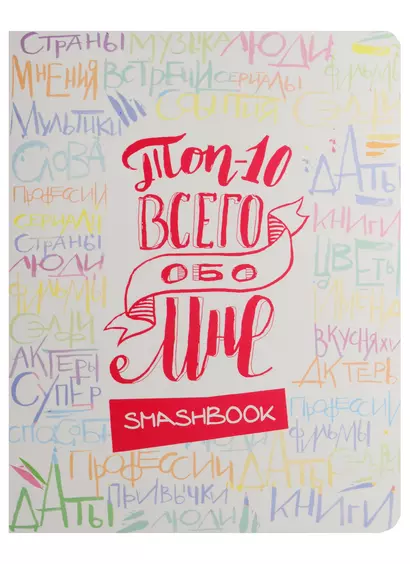 СТРАНЫ МУЗЫКА ЛЮДИ
МНЕНИЯ ВСТРЕЧИ СЕРИАЛЫ ФИЛЬМЫ
МУЛЬТИКИ СОБЫТИЯ СЭЛФИ
СЛОВА
Топ-10
ДАТЫ
ПРОФЕССИИ
ВСЕГО
КНИГИ
СЕРИАЛЫ
СТРАНЫ
ОБО
ЦВЕТЫ
ЛЮДИ
ФИЛЬМЫ
Мне
ИМЕНА
СЭЛФИ
ВКУСНЯХИ
АКТЕРЫ
АКТЕРЫ
СУПЕР
SMASHBOOK
СПОСОБЫ
ФИЛЬМЫ
ПРОФЕССИИ ДАТЫ
ДАТЫ ПРИВЫЧКИ КНИГИ
ЛЮДИ